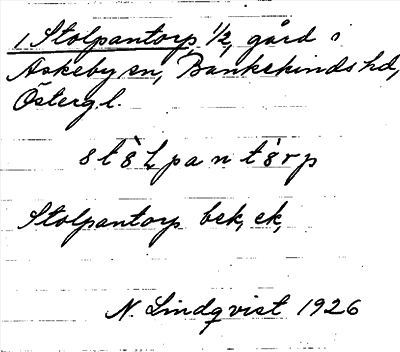 1 Stolpantorp, 1/2, gård i
Askeby sn, Bankekinds hd,
Österg. l.
stòLpantòrp
Stolpantorp bek, ek,
N. Lindqvist 1926